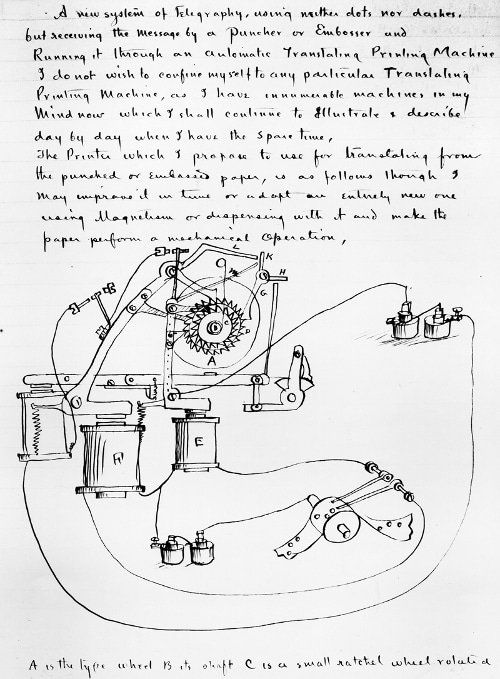 A new system of Telegraphy, using neither dots nor dashes,
but receiving the message by a Puncher or Embosser and
Running it through an automatic Translating Printing Machine
I do not wish to confine myself to any particular Translating
Printing Machine, as I have innumerable machines in my
Mind now which I shall continue to Illustrate & describe
day by day when I have the spare time,
The Printer which I propose to use for translating from
the punched or Embossed paper, is as follows though I
may improve it in time or adapt an entirely new one
using Magnetism or dispensing with it and make the
paper perform a mechanical operation,
L
K
C
H
G
B
D
A
E
A is the type wheel B its shaft C is a small ratchel wheel rotated